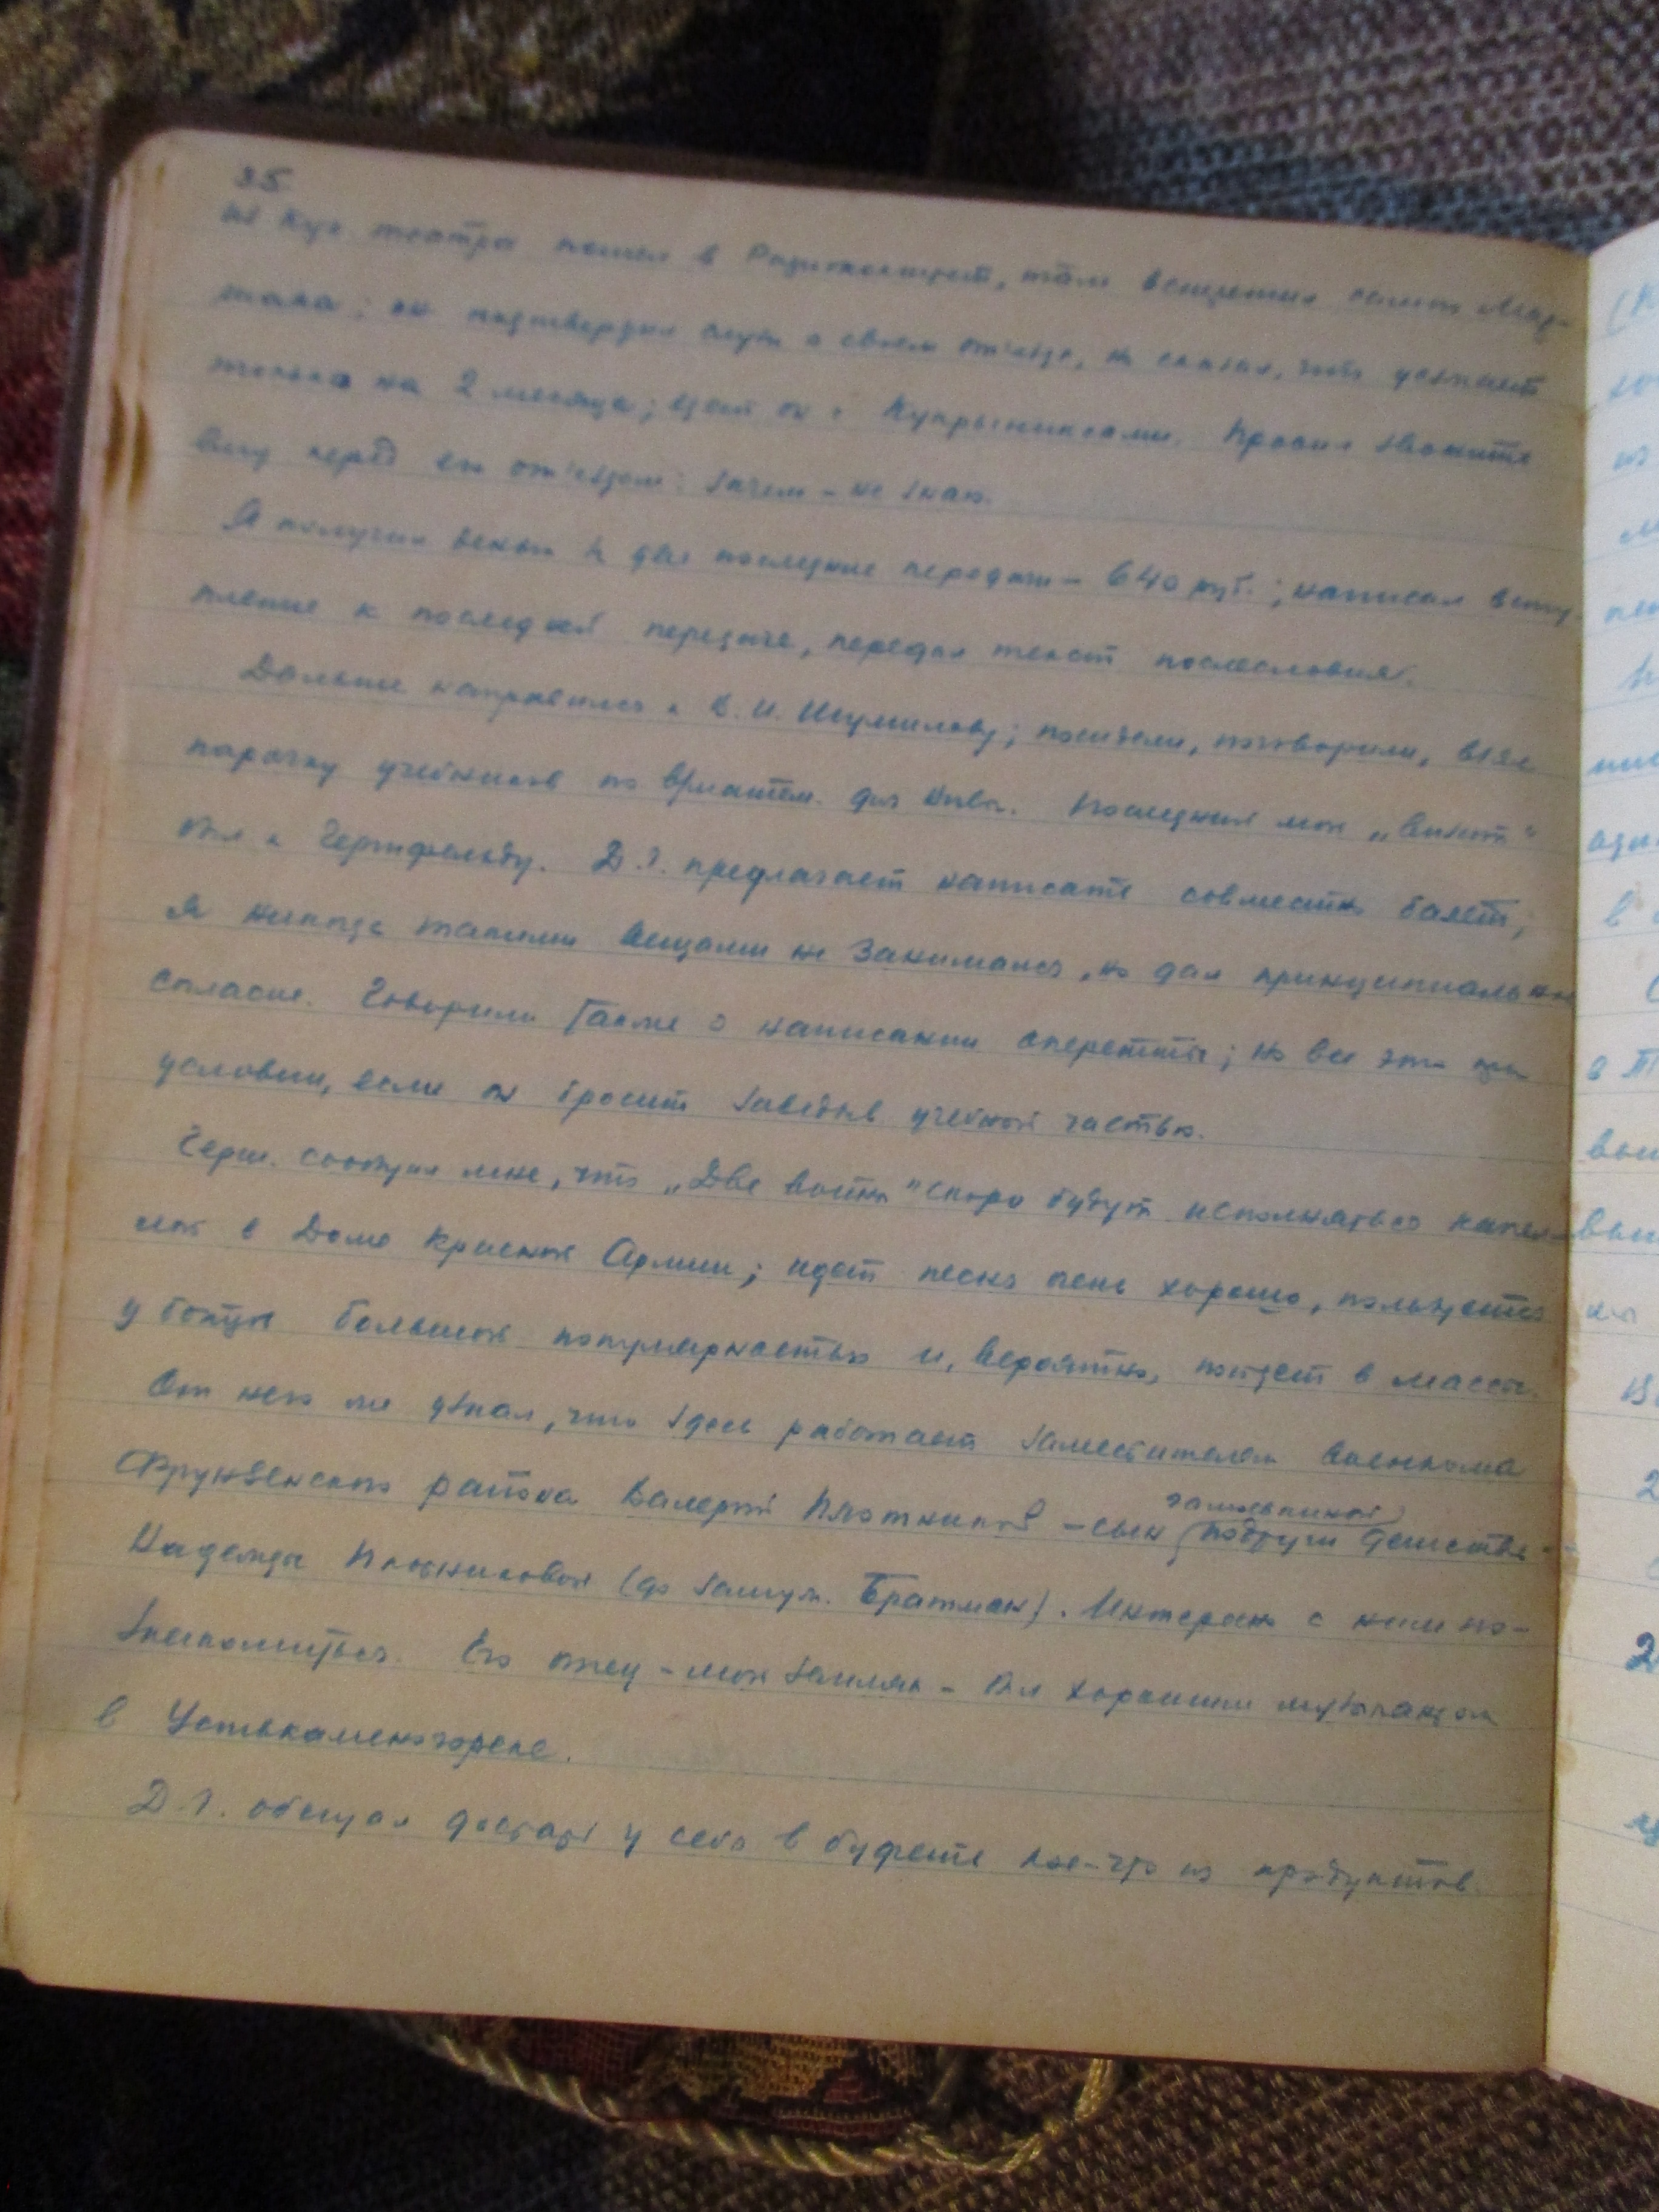 35
Из Кук. театра пошел в Радиокомитет, там встретил самого Мар-
шака; он подтвердил слух о своем от'езде, но сказал, что уезжает
только на 2 месяца; едет он с Кукрыниксами. Просил звонить
ему перед его от'ездом: зачем – не знаю.
Я получил деньги за две последние передачи – 640 руб.; написал всту-
пление к последней передаче, передал текст послесловия.
Дальше направился к Шумилову; посидели, поговорили, взял
парочку учебников по для Вивы. Последний мой „визит"
был к Гершфельду. Д.Г. предлагает написать совместно балет;
я никогда такими вещами не занимался, но дал принципиальное
согласие. Говорили также о написании оперетты; но все это при
условии, если он бросит заведыв. учебной частью.
Герш. сообщил мне, что „Две войны" скоро будут исполняться капел-
лой в Доме Красной Армии; идет песня очень хорошо, пользуется
у бойцов большой популярностью и, вероятно, пойдет в массы.
От него же узнал, что здесь работает заместителем военкома
Фрунзенского района Валерий Плотников – сын подруги детства
Надежды Плотниковой (до замуж. Братман). Интересно с ним по-
знакомиться. Его отец – мой земляк – был хорошим музыкантом
в Устькаменогорске.
Д.Г. обещал достать у себя в буфете кое-что из продуктов.